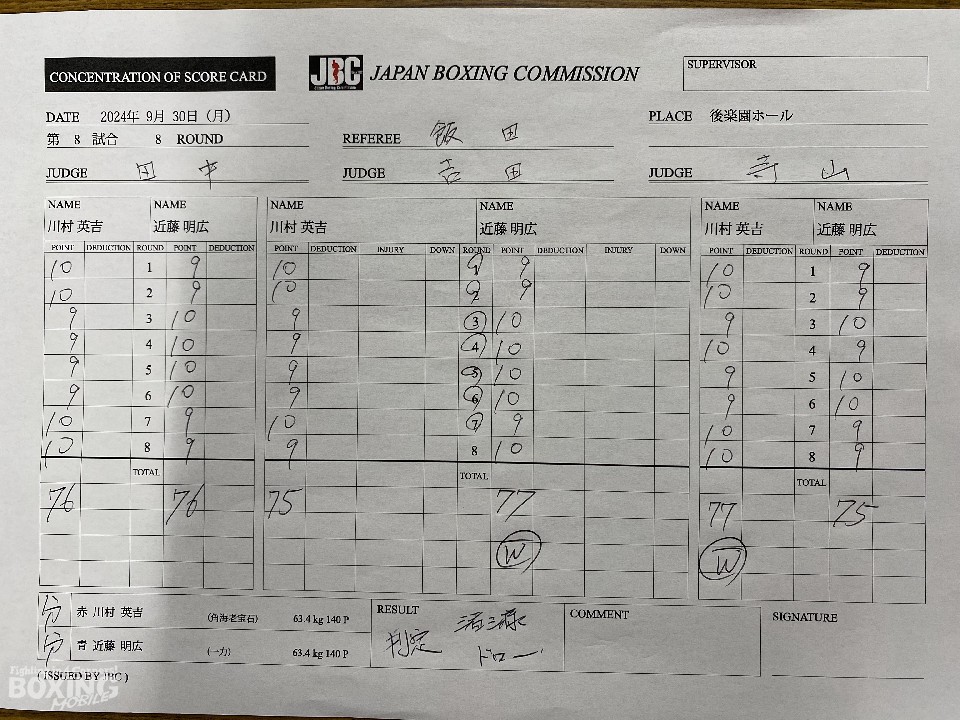 CONCENTRATION OF SCORE CARD JBC JAPAN BOXING COMMISSION SUPERVISOR
DATE 2024年 9月 30日 (月) PLACE 後楽園ホール
第 8 試合 8 ROUND REFEREE 飯田
JUDGE 田中 JUDGE 吉田 JUDGE 寺山
NAME NAME NAME NAME NAME NAME
川村 英吉 近藤 明広 川村 英吉 近藤 明広 川村 英吉 近藤 明広
POINT DEDUCTION ROUND POINT DEDUCTION POINT DEDUCTION INJURY DOWN ROUND POINT DEDUCTION INJURY DOWN POINT DEDUCTION ROUND POINT DEDUCTION
10 1 9 10 1 9 10 1 9
10 2 9 10 2 9 10 2 9
9 3 10 9 3 10 9 3 10
9 4 10 9 4 10 10 4 9
9 5 10 9 5 10 9 5 10
9 6 10 9 6 10 9 6 10
10 7 9 10 7 9 10 7 9
10 8 9 9 8 10 10 8 9
TOTAL TOTAL TOTAL
76 76 75 77 77 75
W W
分 赤 川村 英吉 (角海老宝石) 63.4 kg 140 P
分 青 近藤 明広 (一力) 63.4 kg 140 P
RESULT
判定 三者三様
ドロー
COMMENT
SIGNATURE
(ISSUED BY JBC)
BOXING
MOBILE